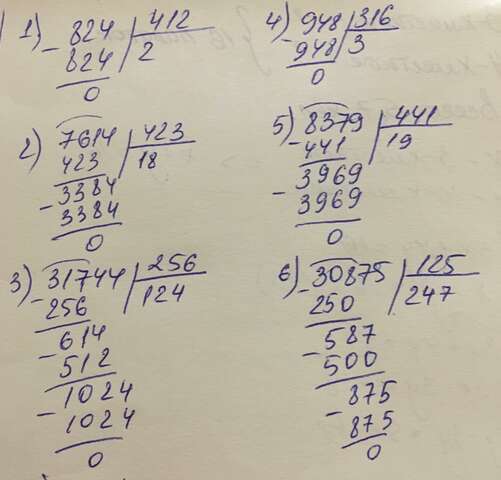 1) 824 412
- 824 2
0
2) 7614 423
423 18
3384
- 3384
0
3) - 31744 256
256 124
- 614
512
1024
- 1024
0
4) 948 316
- 948 3
0
5) 8379 441
- 441 19
3969
- 3969
0
6) - 30875 125
250 247
- 587
500
- 875
875
0